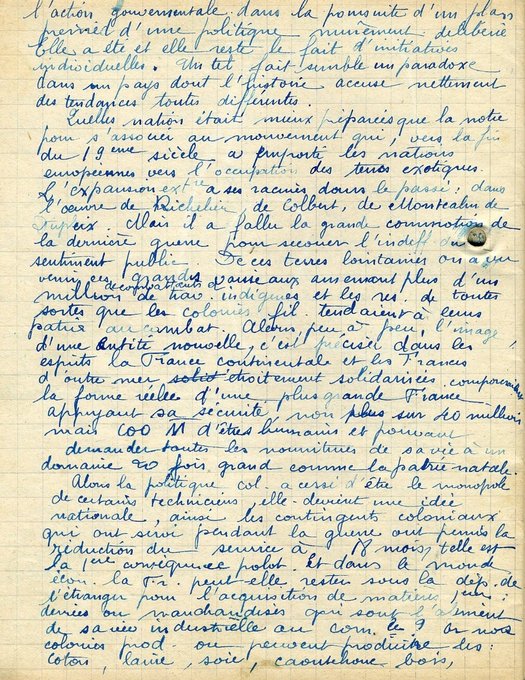 l'action gouvernementale dans la poursuite d'un plan
d'une politique mûrement délibérée
Elle a été et elle reste le fait d'initiatives
individuelles. Un tel fait semble un paradoxe
dans un pays dont l'histoire accuse nettement
des tendances toutes différentes.
Quelles nation était mieux préparées que la notre
pour s'associer au mouvement qui, vers la fin
du 19ème siècle a emporté les nations
européennes vers l'occupation des terres exotiques.
L'expansion a ses racines dans le passé : dans
l'œuvre de Richelieu, de Colbert, de Montcalm de
Dupleix. Mais il a fallu la grande commotion de
la dernière guerre pour secouer l'indeff. du
sentiment public. De ces terres lointaines on a vu
venir ces grands vaisseaux amenant plus d'un
million de combattants de trav. indigènes et les res. de toutes
sortes que les colonies fil. tendaient à leurs
patrie au combat. Alors, peu à peu, l'image
d'une entité nouvelle, c'est précisée dans les
esprits la France continentale et les Frances
d'outre mer étroitement solidarisées
la forme réelle d'une plus grande France
appuyant sa sécurité non plus sur 40 millions
mais 100 M d'êtres humains et pouvant
demander toutes les nourritures de sa vie à un
domaine 20 fois grand comme la patrie natale.
Alors la politique col. a cessé d'être le monopole
de certains techniciens, elle devient une idée
nationale, ainsi les contingents coloniaux
qui ont servi pendant la guerre ont permis la
réduction du service à 18 mois, telle est
la 1ère conséquence Et dans le monde
écon. la Fr. peut-elle rester sous la dép. de
l'étranger pour l'acquisition de matières
denrées ou marchandises qui sont l'aliment
de sa vie industrielle au com. or nos
colonies prod. ou peuvent produire les :
coton, laine, soie, caoutchouc bois,